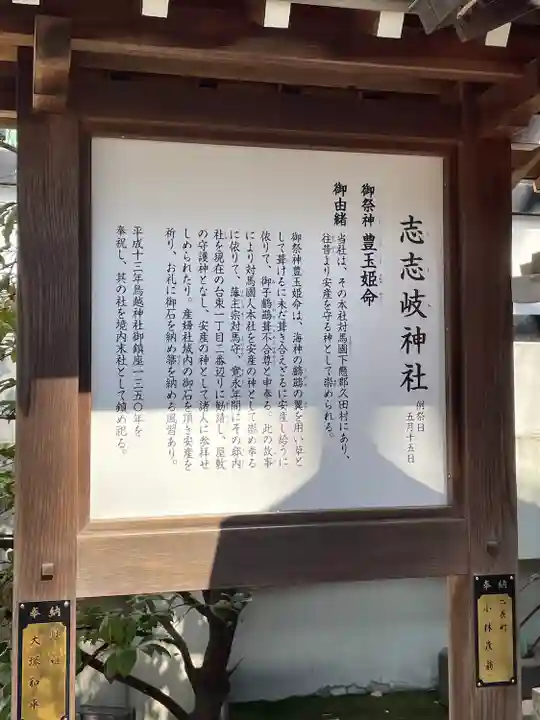 志志岐神社
例祭日
五月十五日
御祭神 豊玉姫命
御由緒
当社は、その本社対馬國下懸郡久田村にあり、
往昔より安産を守る神として崇められる。
御祭神豊玉姫命は、海神の鸕鶿の翼を用い草と
して葺けるに未だ葺き合えざるに安産し給うに
依りて、御子鸕鶿葺不合尊と申奉る。此の故事
により対馬國人本社を安産の神として崇め奉る
に依りて、藩主宗対馬守、寛永年間にその邸内
社を現在の台東一丁目二番辺りに勧請し、屋敷
の守護神となし、安産の神として諸人に参拝せ
しめられたり。産婦社域内の御石を頂き安産を
祈り、お礼に御石を納め幕を納める風習あり。
平成十三年鳥越神社御鎮座一三五〇年を
奉祝し、其の社を境内末社として鎮め祀る。
奉納
二長町
小林
奉納
大塚和平